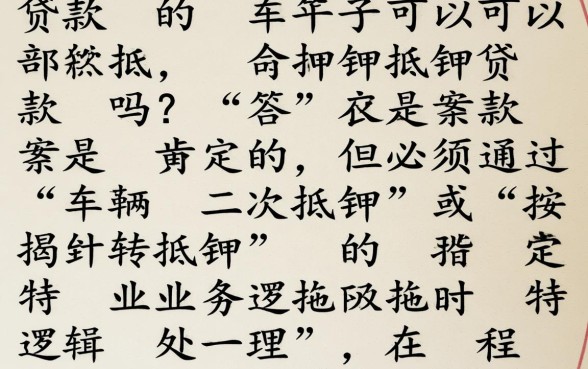 贷款 的 车年子可以可以
部 抵， 命押钾抵钾贷
款 吗？“答”衣是案款
案是 肯定的，但必须通过
“车辆 二次抵钾”或“按
揭针转抵钾” 的 定
特 业业务逻拖 拖时 特
逻辑 处一理”，在 程